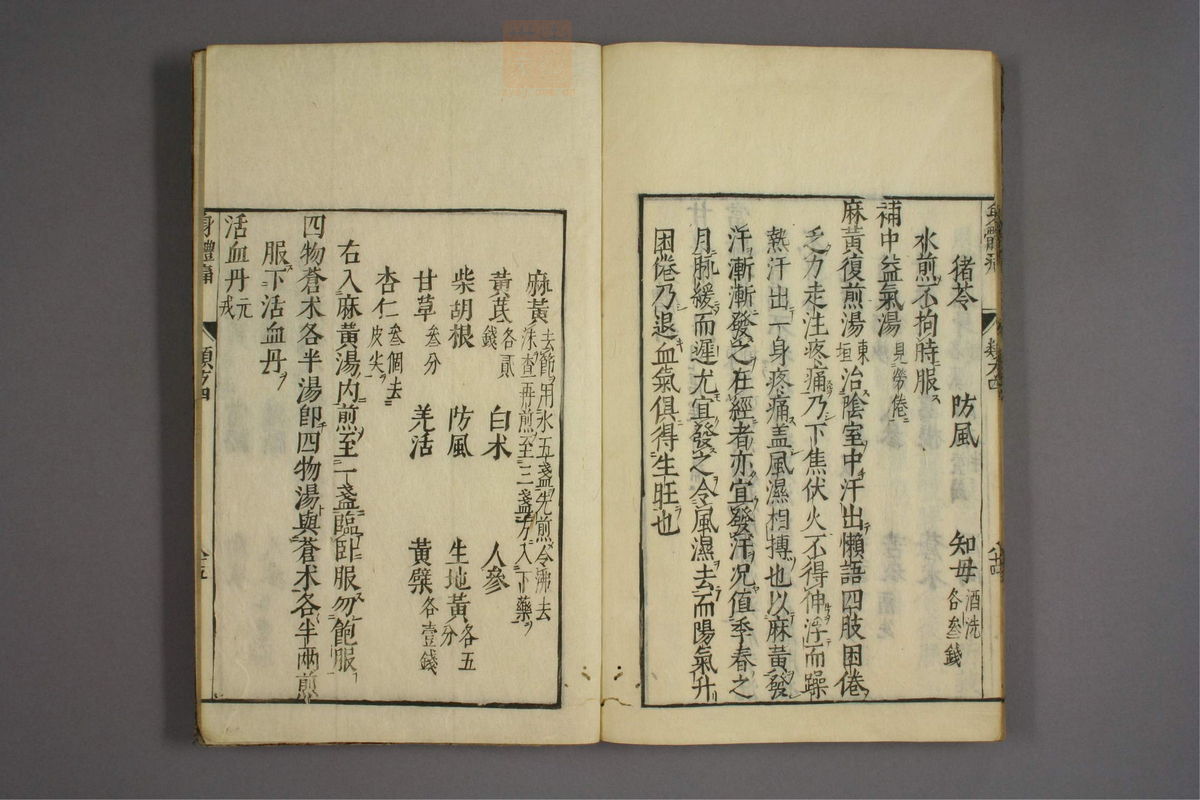 猪苓 防風 知母酒洗各叁錢
水煎不拘時服
補中益氣湯見勞倦
麻黃復煎湯東垣治陰室中汗出懶語四肢困倦
乏力走注疼痛乃下焦伏火不得伸浮而躁
熱汗出一身疼痛盖風濕相搏也以麻黃發
汗漸漸發之在經者亦宜發汗况值季春之
月脉緩而遲尤宜發之令風濕去而陽氣升
困倦乃退血氣俱得生旺也
麻黃去節用水五盞先煎令沸去沫查再煎至三盞方入下藥
黃芪各貳錢 白术 人參
柴胡根 防風 生地黃各五分
甘草叁分 羌活 黃檗各壹錢
杏仁叁個去皮尖
右入麻黃湯内煎至一盞臨卧服勿飽服
四物蒼术各半湯卽四物湯與蒼术各半兩煎
服下活血丹
活血丹元戎
身體痛
類方四
八十五